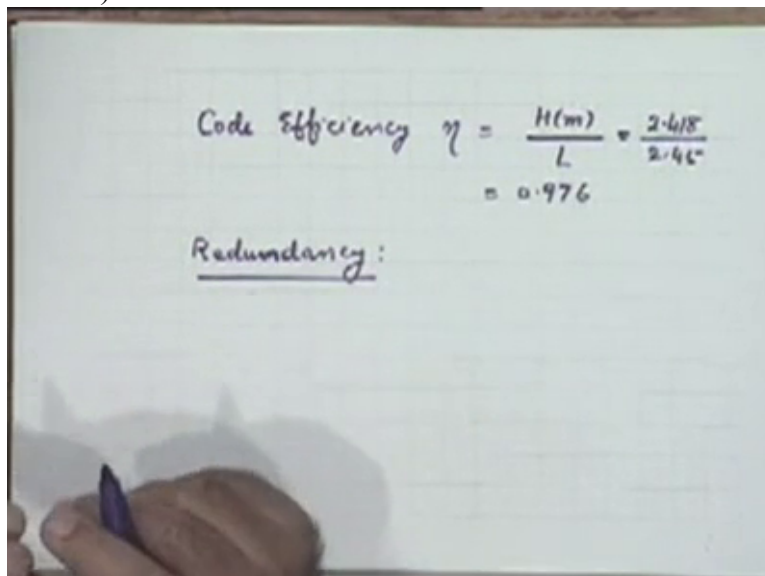 Code Efficiency η = H(m) / L = 2.418 / 2.45
= 0.976
Redundancy: